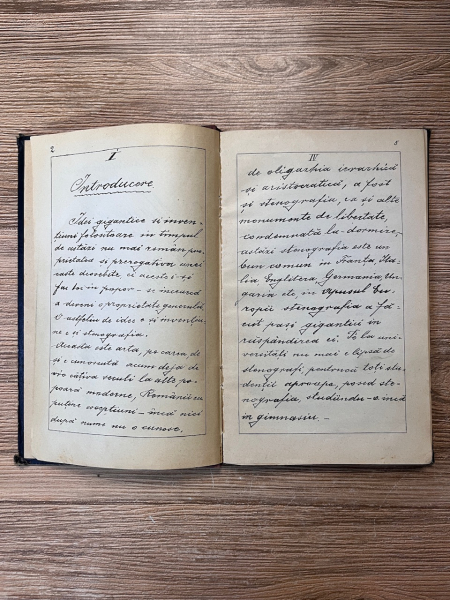 2
I
Introducere
Idei gigantice si inven-
tiuni folositoare in timpul
de astăzi nu mai remân pro-
prietatea si prerogativa unei
caste deosebite, ci acestea-si
fac loc in popor – se incearcă
a deveni o proprietate generală.
O astfeliu de idee e și inventiu-
ne e si stenografia.
Aceasta este arta, pe carea, de
și e cunoscută acum deja de
vre-o câtiva seculi la alte po-
poară moderne, Românii cu
putine exceptiuni – incă nici
după nume nu o cunosc.
IV
de oligarhia ierarhică
și aristocratică, a fost
și stenografia, ca și alte
monumente de libertate,
condemnată la dormire,
astăzi stenografia este un
bun comun in Franta, Ita-
lia, Engliteră, Germania, Un-
garia etc, in apusul Eu-
ropii stenografia a fă-
cut pași gigantici in
răspândirea ei. Pe la uni-
versităti nu mai e lipsă de
stenografi, pentrucă toti stu-
dentii aproape, posed ste-
nografia, studiându-o incă
in gimnasiu –